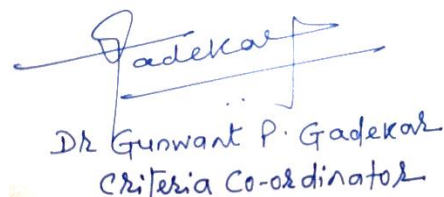 Gadekar
Dr Gunwant P. Gadekar
Criteria Co-ordinator